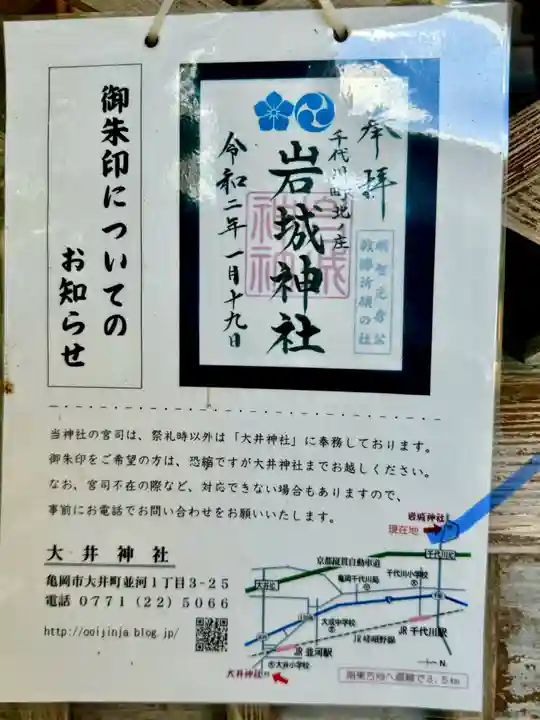 御朱印についての
お知らせ
奉拝
千代川町北ノ庄
岩城神社
令和二年一月十九日
明智光秀公
戦勝祈願の社
当神社の宮司は、祭礼時以外は「大井神社」に奉務しております。
御朱印をご希望の方は、恐縮ですが大井神社までお越しください。
なお、宮司不在の際など、対応できない場合もありますので、
事前にお電話でお問い合わせをお願いいたします。
大井神社
亀岡市大井町並河1丁目3-25
電話 0771(22)5066
http://ooijinja blog.jp/
岩城神社
現在地
京都縦貫自動車道
千代川IC
大井IC
亀岡千代川局
千代川小学校
大成中学校
JR千代川駅
JR嵯峨野線
JR並河駅
大井小学校
大井神社
N
南東方向へ直線で3.5km